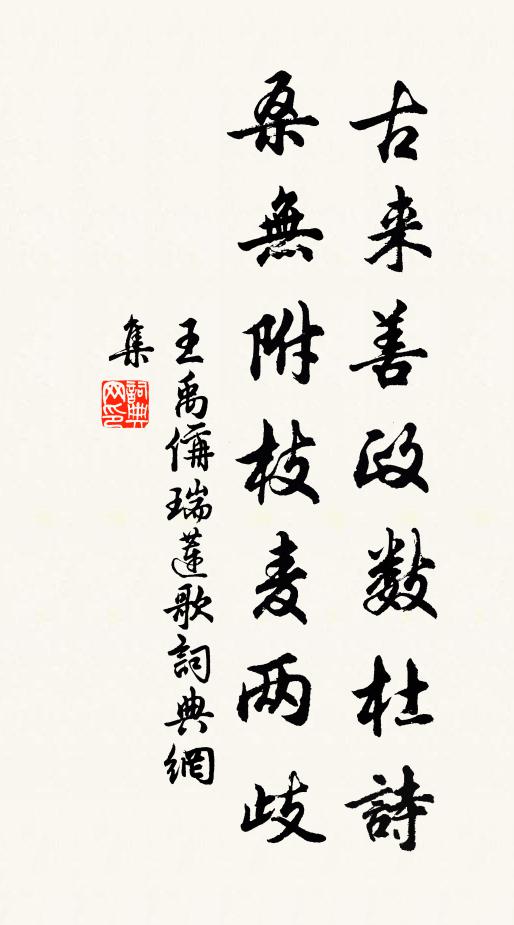 古来善政数杜詩
桑無附枝麦两歧
王禹偁瑞蓮歌詞典網
集
詞典
网印